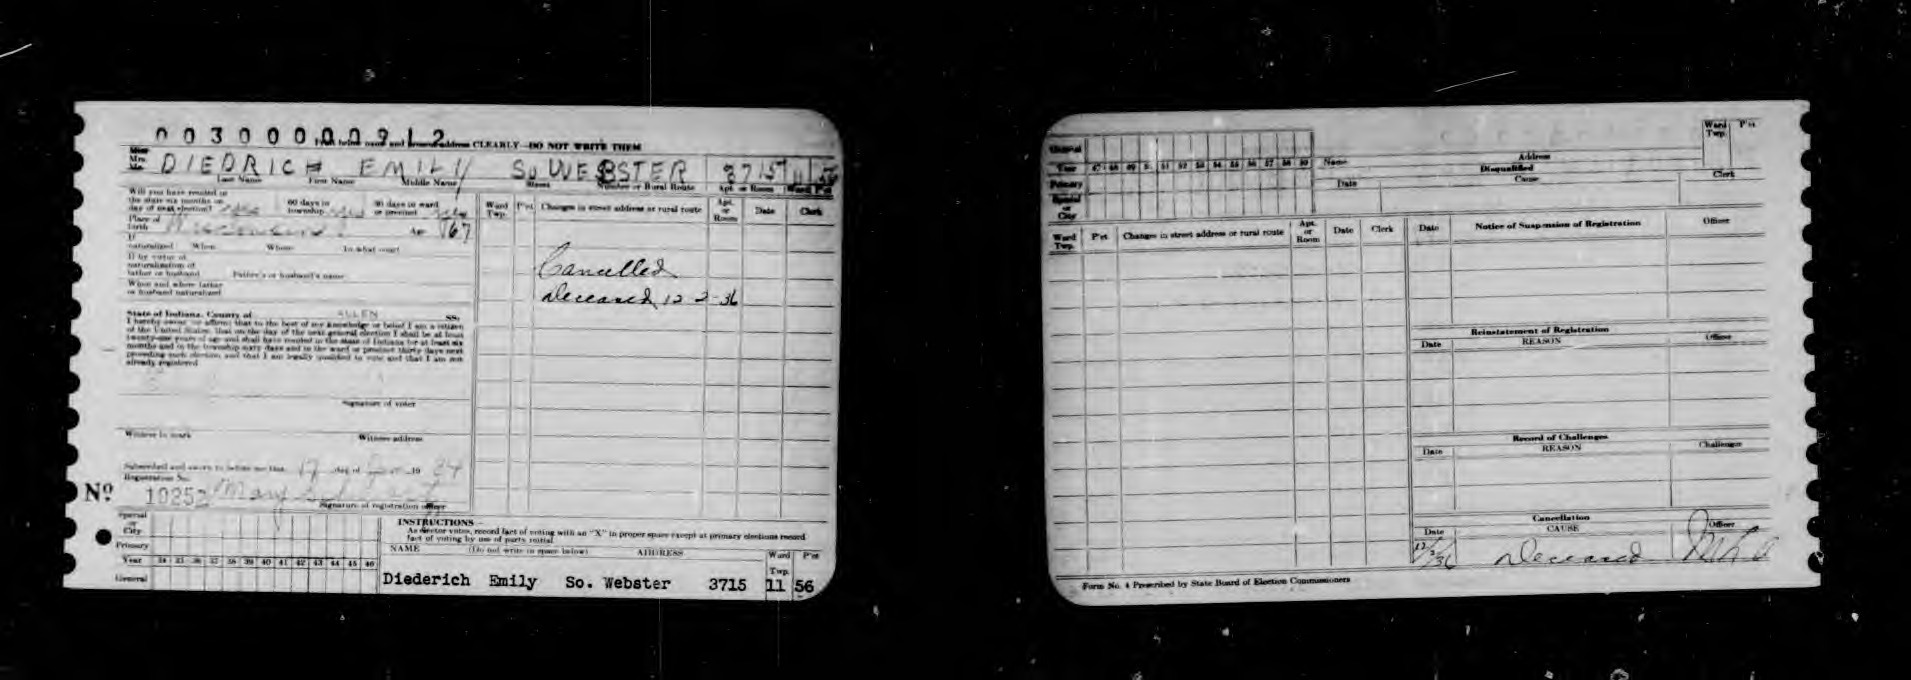 003000000912
Print below name and present address CLEARLY—DO NOT WRITE THEM
Miss
Mrs.
Mr.
DIEDRICH EMILY So WEBSTER 3715 11 56
Last Name First Name Middle Name Street Number or Rural Route Apt. or Room Ward P'ct
Will you have resided in
the state six months on
day of next election? yes
60 days in
township yes
30 days in ward
or precinct yes
Place of
birth
Age 67
If
naturalized When Where In what court
If by virtue of
naturalization of
father or husband Father's or husband's name
When and where father
or husband naturalized
State of Indiana, County of ALLEN SS.
I hereby swear or affirm that to the best of my knowledge or belief I am a citizen
of the United States; that on the day of the next general election I shall be at least
twenty-one years of age and shall have resided in the state of Indiana for at least six
months and in the township sixty days and in the ward or precinct thirty days next
preceding such election and that I am legally qualified to vote and that I am not
already registered
Signature of voter
Witness to mark Witness address
Subscribed and sworn to before me this 17 day of 19 34
Registration No.
Nº 10252 Mary
Signature of registration officer
Special
or
City
Primary
Year 34 35 36 37 38 39 40 41 42 43 44 45 46
General
Ward
Twp. P'ct Changes in street address or rural route Apt.
or
Room Date Clerk
Cancelled
Deceased 12-2-36
INSTRUCTIONS—
As elector votes, record fact of voting with an "X" in proper space except at primary elections record
fact of voting by use of party initial
NAME (Do not write in space below) ADDRESS Ward
Twp. P'ct
Diederich Emily So. Webster 3715 11 56
General
Year 47 48 49 50 51 52 53 54 55 56 57 58 59
Primary
Special
or
City
Name Address
Ward
Twp. P'ct
Disqualified
Date Cause Clerk
Ward
Twp. P'ct Changes in street address or rural route Apt.
or
Room Date Clerk
Date Notice of Suspension of Registration Officer
Reinstatement of Registration
Date REASON Officer
Record of Challenges
Date REASON Challenger
Cancellation
Date CAUSE Officer
12/2/36 Deceased
Form No. 4 Prescribed by State Board of Election Commissioners